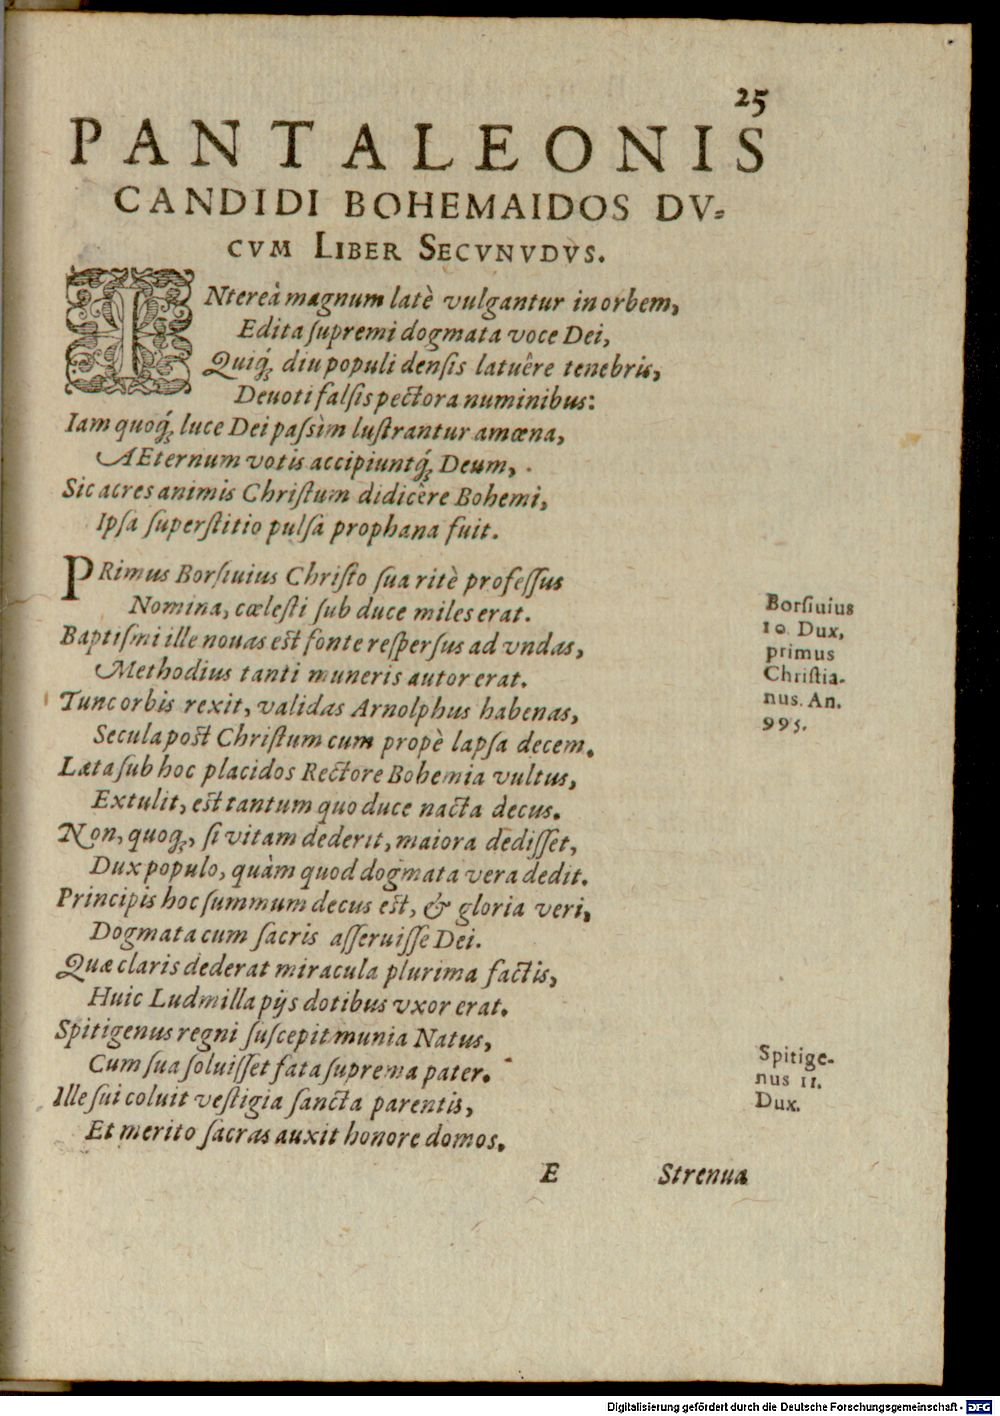 25
PANTALEONIS
CANDIDI BOHEMAIDOS DV=
CVM LIBER SECVNVDVS.
INtereà magnum latè vulgantur in orbem,
Edita supremi dogmata voce Dei,
Quiq́; diu populi densis latuêre tenebris,
Deuoti falsis pectora numinibus:
Iam quoq́; luce Dei passìm lustrantur amœna,
AEternum votis accipiuntq́; Deum,
Sic acres animis Christum didicêre Bohemi,
Ipsa superstitio pulsa prophana fuit.
PRimus Borsiuius Christo sua ritè professus
Nomina, cœlesti sub duce miles erat.
Baptismi ille nouas est fonte respersus ad vndas,
Methodius tanti muneris autor erat.
Tunc orbis rexit, validas Arnolphus habenas,
Secula post Christum cum propè lapsa decem.
Læta sub hoc placidos Rectore Bohemia vultus,
Extulit, est tantum quo duce nacta decus.
Non, quoq;, si vitam dederit, maiora dedisset,
Dux populo, quàm quod dogmata vera dedit.
Principis hoc summum decus est, & gloria veri,
Dogmata cum sacris asseruisse Dei.
Quæ claris dederat miracula plurima factis,
Huic Ludmilla pijs dotibus vxor erat.
Spitigenus regni suscepit munia Natus,
Cum sua soluisset fata suprema pater.
Ille sui coluit vestigia sancta parentis,
Et merito sacras auxit honore domos.
Borsiuius
10. Dux,
primus
Christia-
nus. An.
995.
Spitige-
nus 11.
Dux.
E Strenua
Digitalisierung gefördert durch die Deutsche Forschungsgemeinschaft - DFG